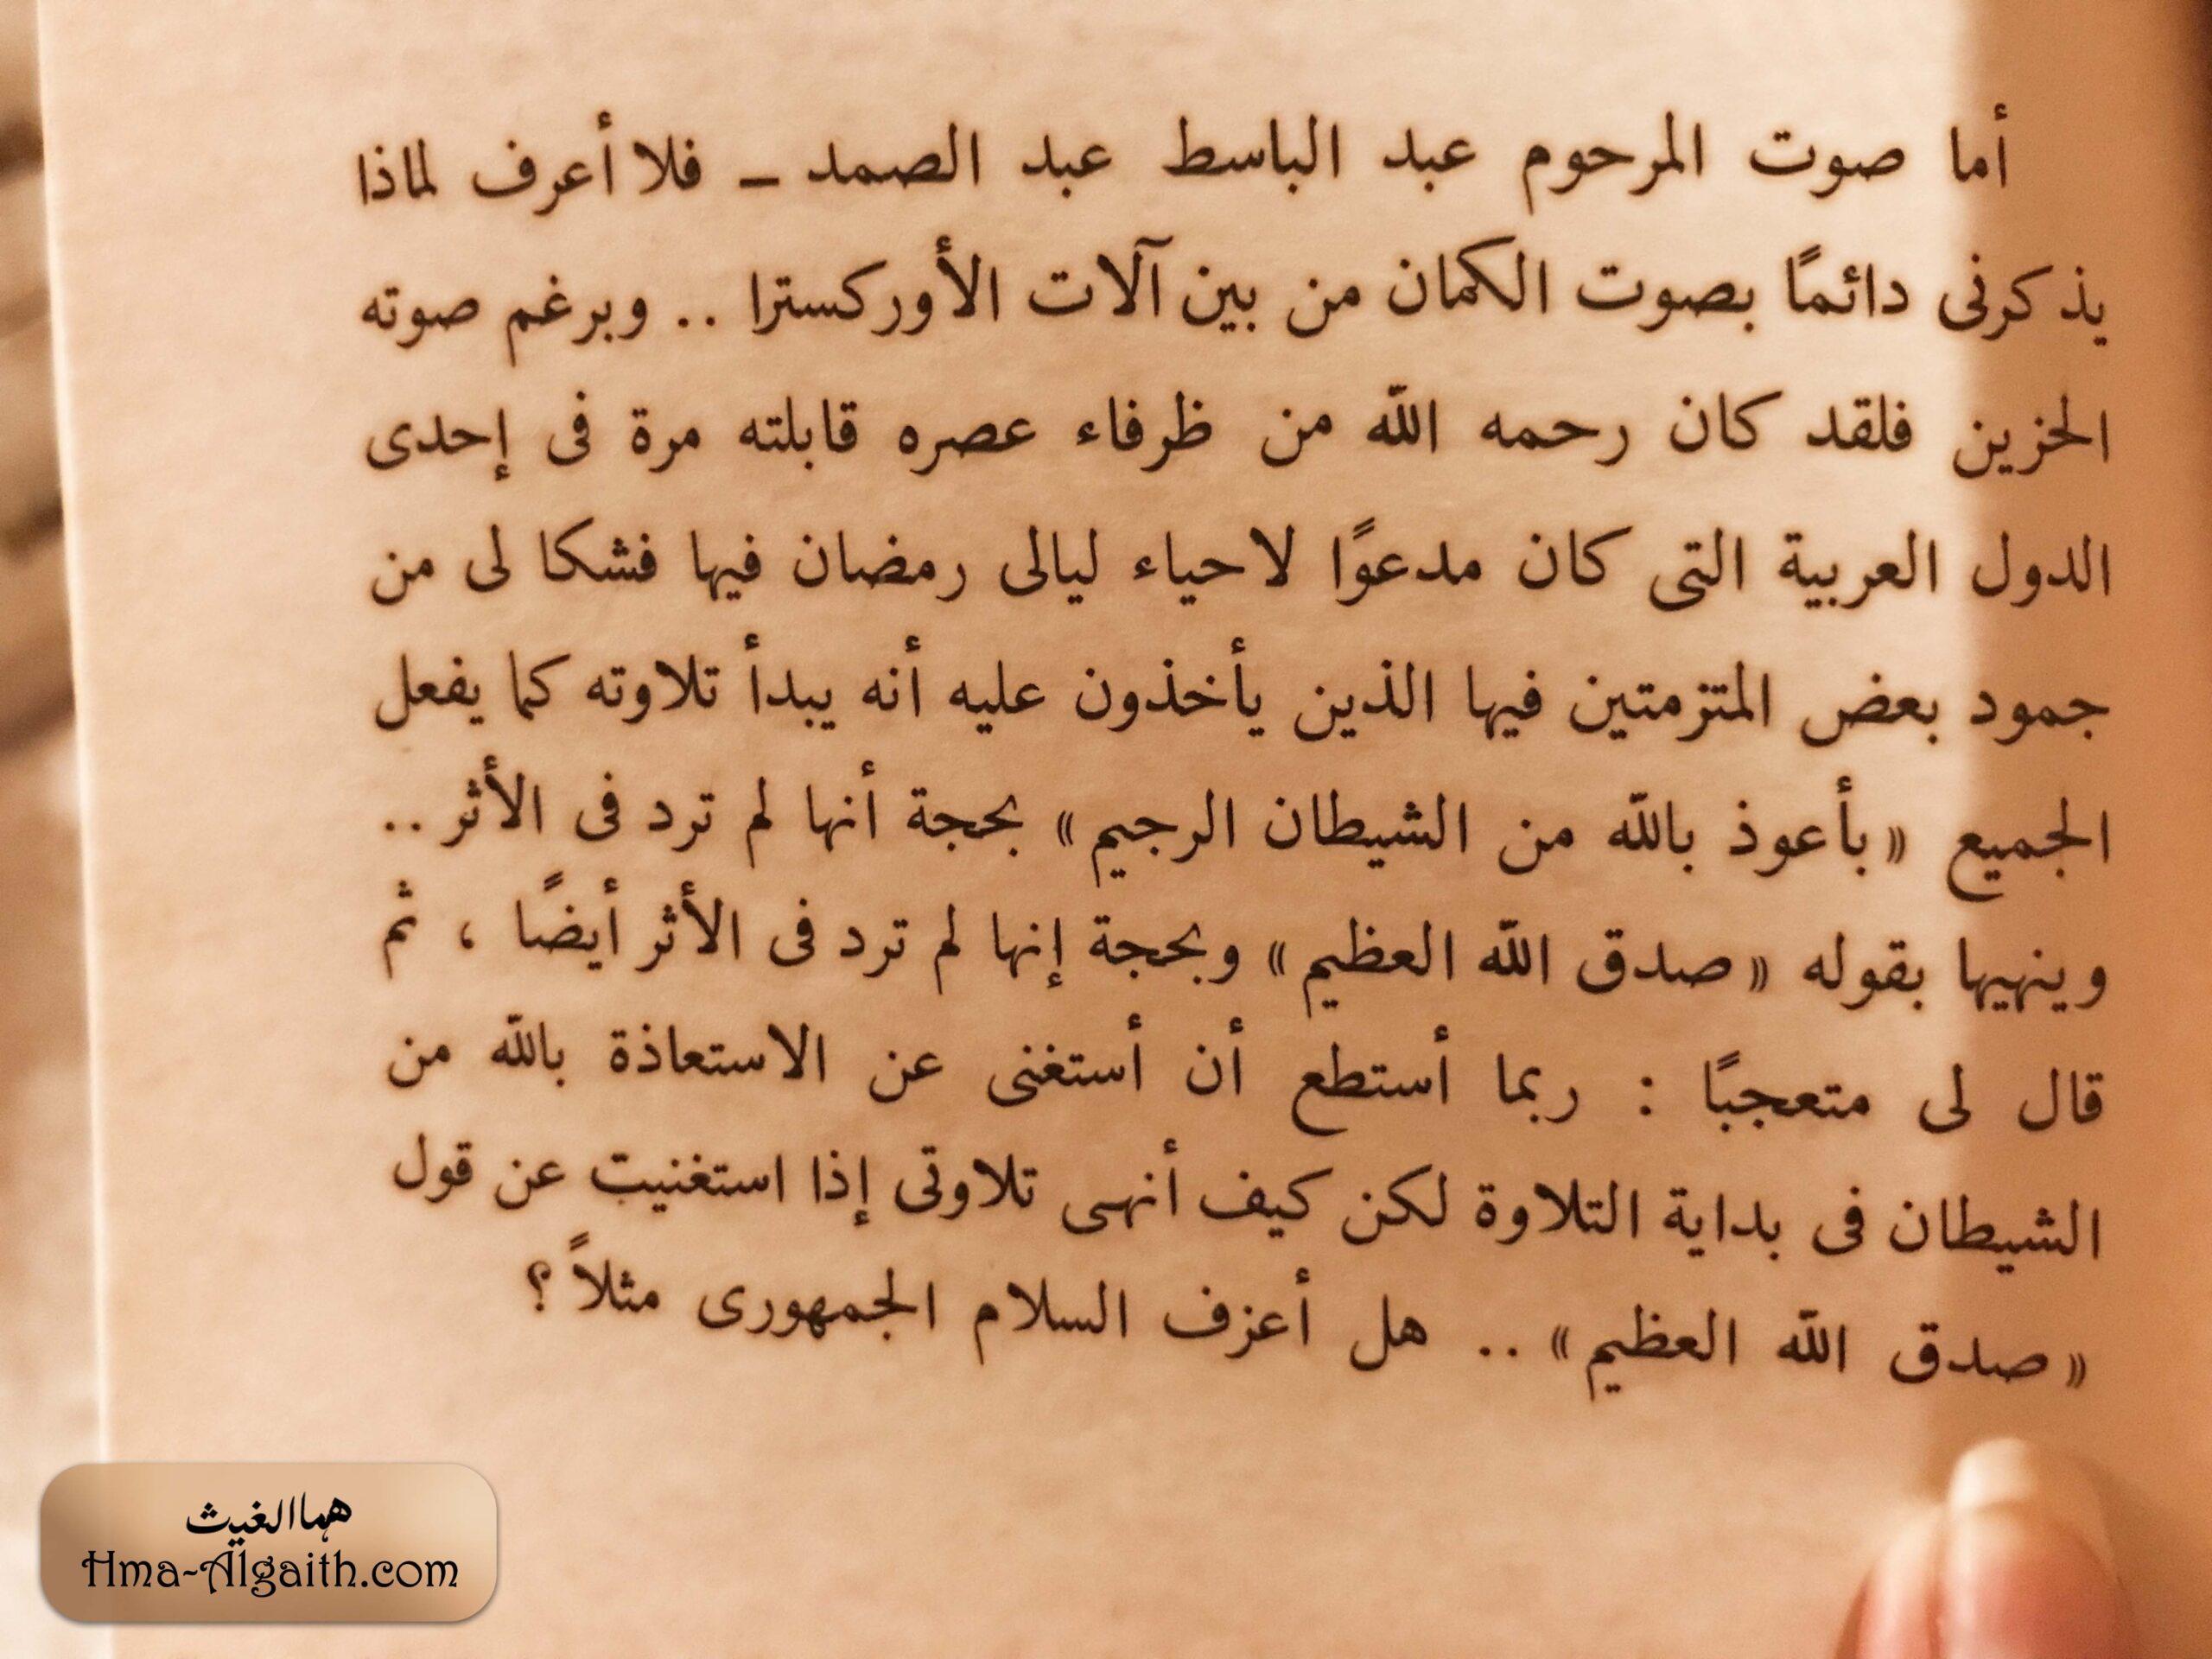 أما صوت المرحوم عبد الباسط عبد الصمد ـ فلا أعرف لماذا
يذكرنى دائمًا بصوت الكمان من بين آلات الأوركسترا .. وبرغم صوته
الحزين فلقد كان رحمه الله من ظرفاء عصره قابلته مرة فى إحدى
الدول العربية التى كان مدعوًا لاحياء ليالى رمضان فيها فشكا لى من
جمود بعض المتزمتين فيها الذين يأخذون عليه أنه يبدأ تلاوته كما يفعل
الجميع «بأعوذ بالله من الشيطان الرجيم» بحجة أنها لم ترد فى الأثر ..
وينهيها بقوله «صدق الله العظيم» وبحجة إنها لم ترد فى الأثر أيضًا ، ثم
قال لى متعجبًا : ربما أستطع أن أستغنى عن الاستعاذة بالله من
الشيطان فى بداية التلاوة لكن كيف أنهى تلاوتى إذا استغنيت عن قول
«صدق الله العظيم» .. هل أعزف السلام الجمهورى مثلاً ؟
هماالغيث
Hma-Algaith.com